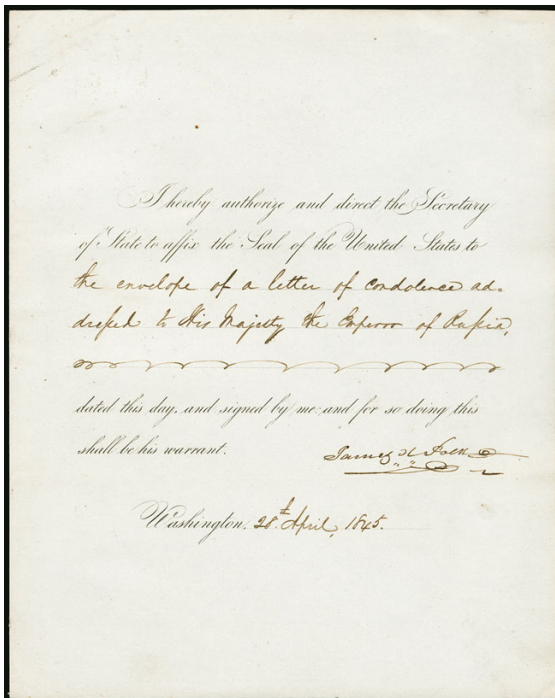 I hereby authorize and direct the Secretary
of State to affix the Seal of the United States to
the envelope of a letter of condolence ad-
dressed to His Majesty the Emperor of Russia,
dated this day, and signed by me; and for so doing this
shall be his warrant.
James K Polk
Washington, 28th April, 1845.